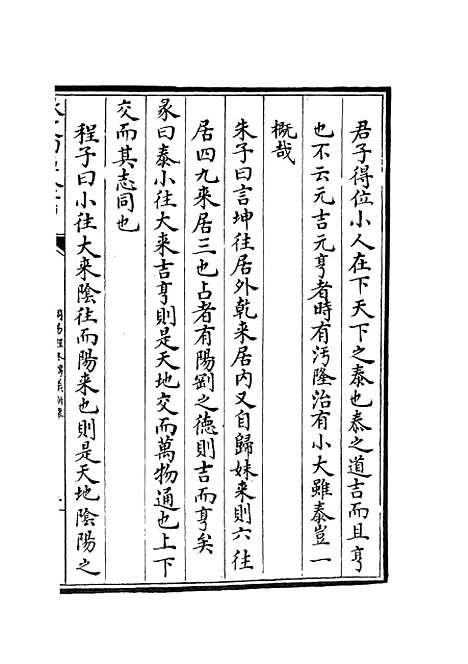 君子得位小人在下天下之泰也泰之道吉而且亨
也不云元吉元亨者時有汚隆治有小大雖泰豈一
概哉
朱子曰言坤往居外乾来居内又自歸妹来則六往
居四九来居三也占者有陽剛之德則吉而亨矣
彖曰泰小往大来吉亨則是天地交而萬物通也上下
交而其志同也
程子曰小往大来陰往而陽来也則是天地陰陽之